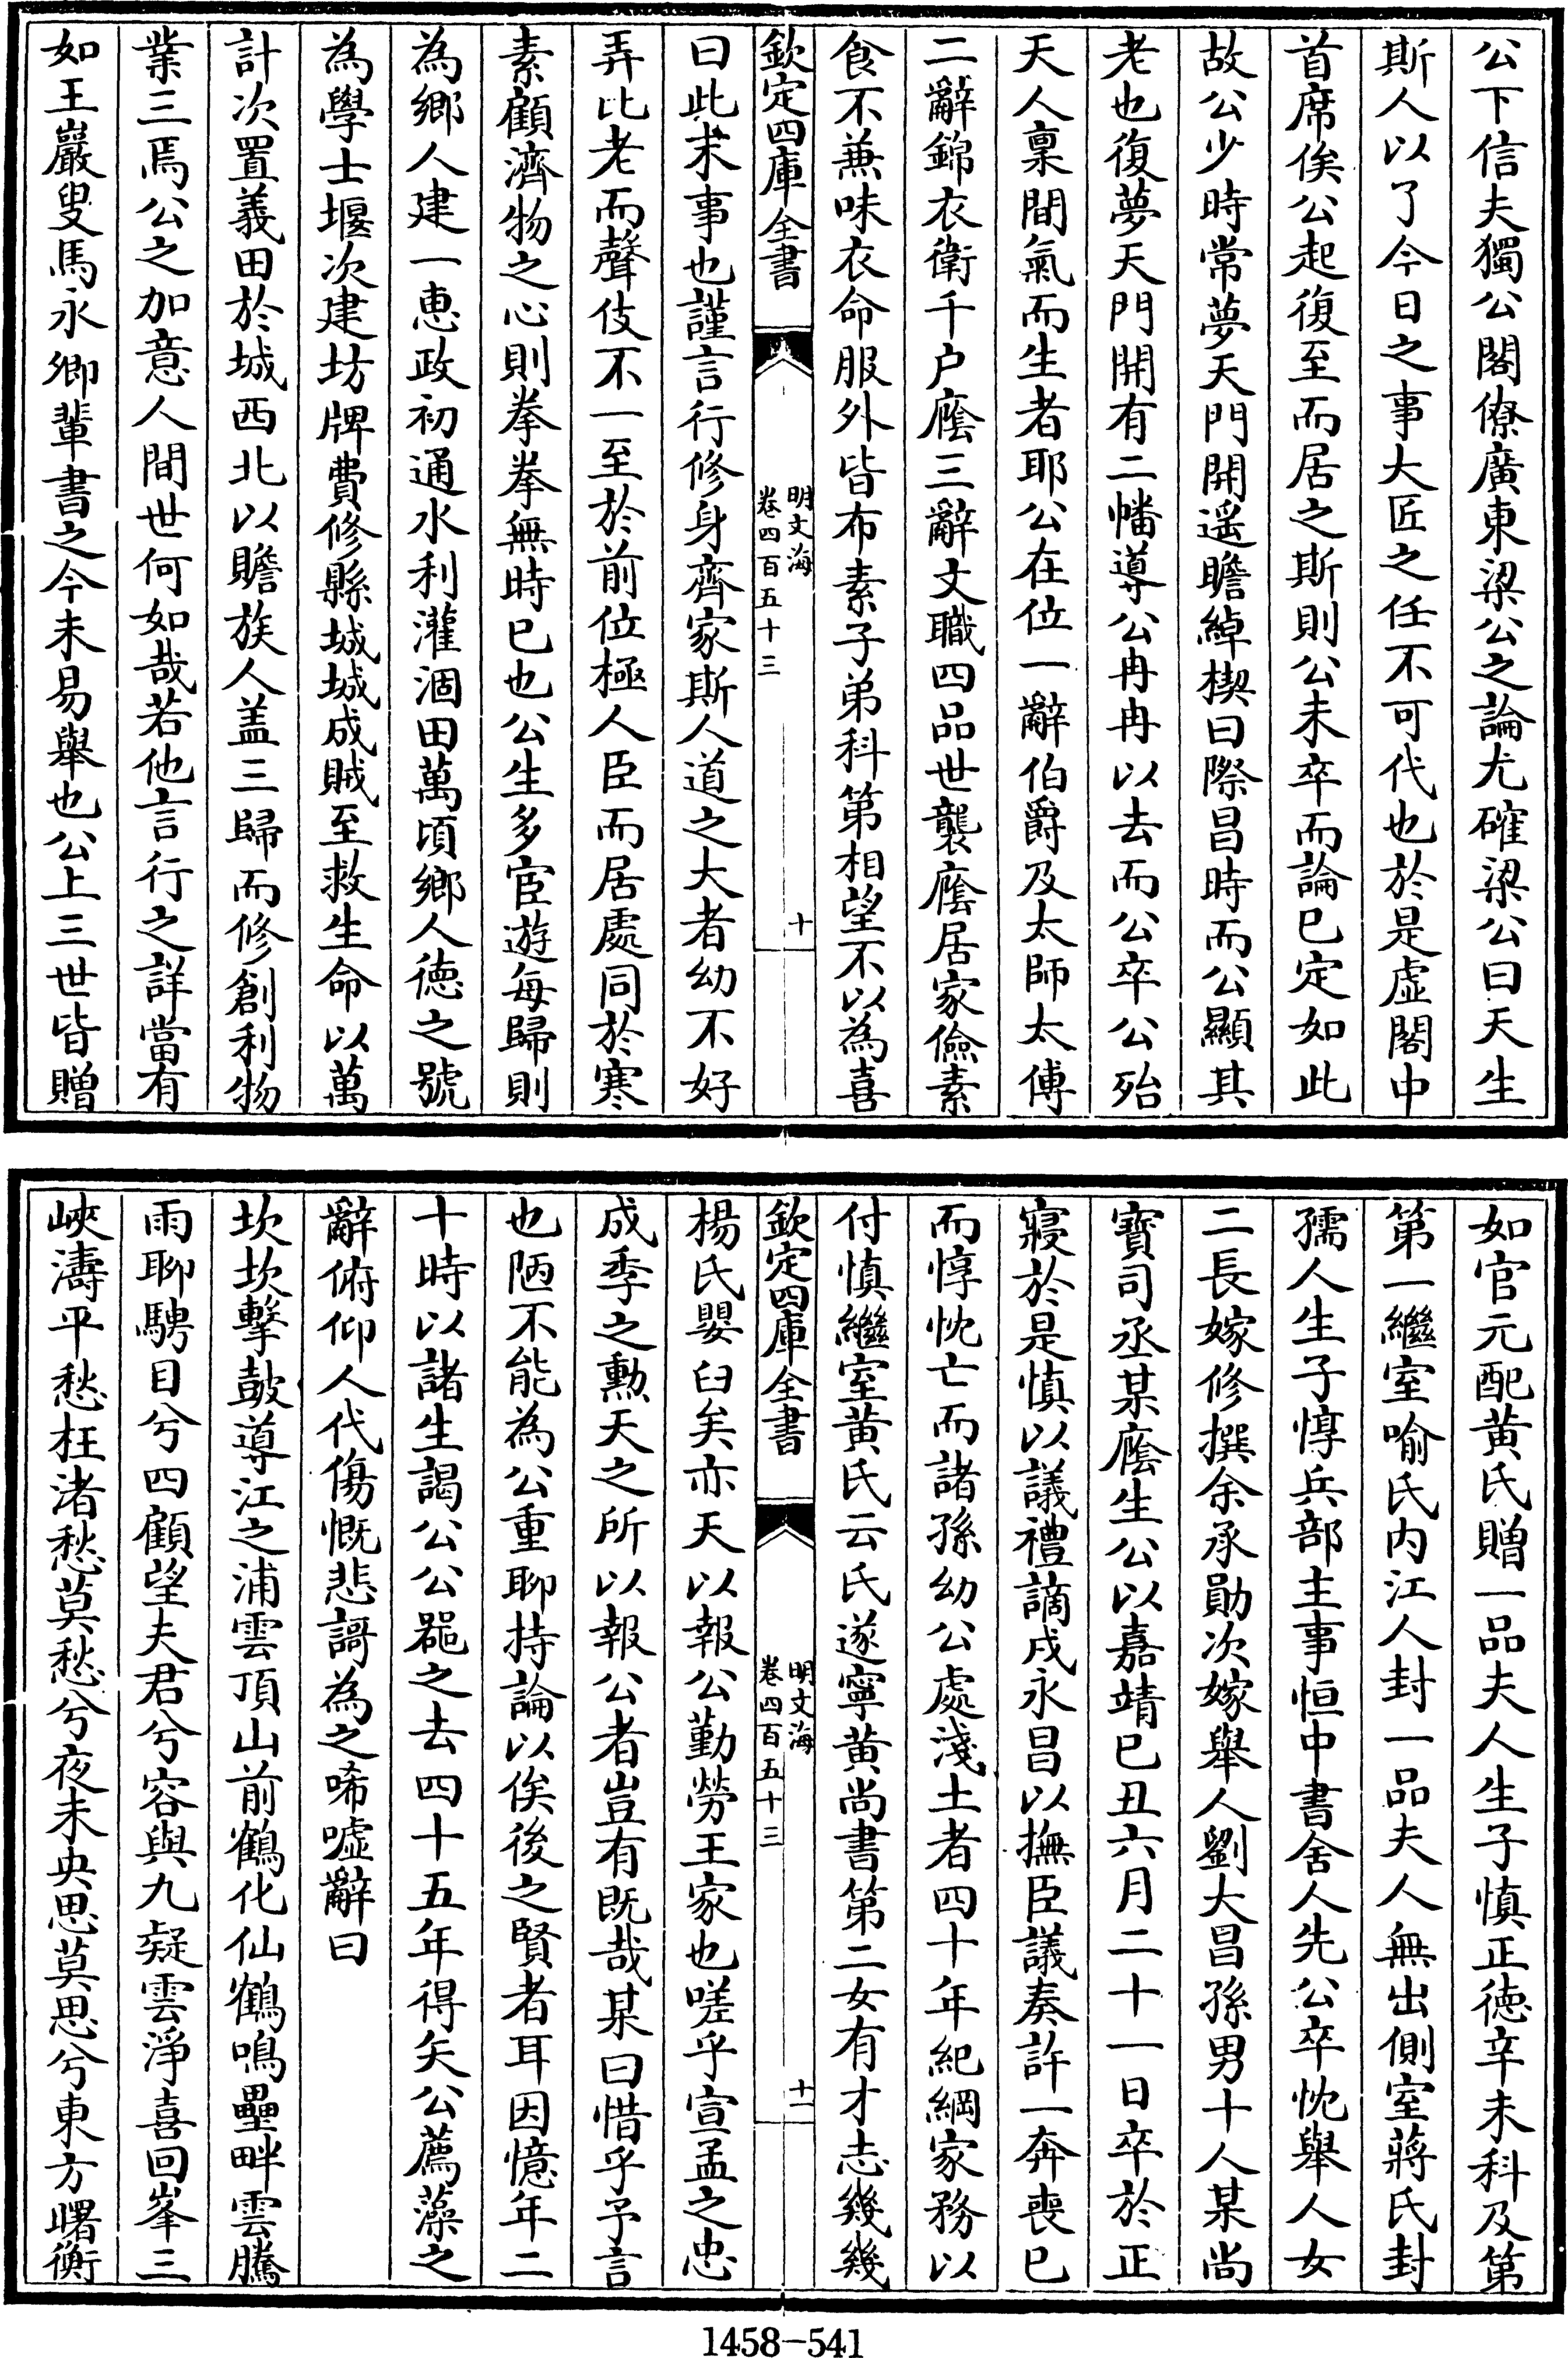 公下信夫獨公閣僚廣東梁公之論尤確梁公曰天生
斯人以了今日之事大匠之任不可代也於是虛閣中
首席俟公起復至而居之斯則公未卒而論已定如此
故公少時常夢天門開遥瞻綽楔曰際昌時而公顯其
老也復夢天門開有二幡導公冉冉以去而公卒公殆
天人稟間氣而生者耶公在位一辭伯爵及太師太傅
二辭錦衣衛千户廕三辭文職四品世襲廕居家儉素
食不兼味衣命服外皆布素子弟科第相望不以為喜
欽定四庫全書
明文海
卷四百五十三
十
曰此末事也謹言行修身齊家斯人道之大者幼不好
弄比老而聲伎不一至於前位極人臣而居處同於寒
素顧濟物之心則拳拳無時已也公生多宦遊每歸則
為鄉人建一惠政初通水利灌涸田萬頃鄉人德之號
為學士堰次建坊牌費修縣城城成賊至救生命以萬
計次置義田於城西北以贍族人盖三歸而修創利物
業三焉公之加意人間世何如哉若他言行之詳當有
如王巖叟馬永卿輩書之今未易舉也公上三世皆贈
如官元配黄氏贈一品夫人生子慎正德辛未科及第
第一繼室喻氏内江人封一品夫人無出側室蔣氏封
孺人生子惇兵部主事恒中書舍人先公卒忱舉人女
二長嫁修撰余承勛次嫁舉人劉大昌孫男十人某尚
寶司丞某廕生公以嘉靖已丑六月二十一日卒於正
寢於是慎以議禮謫戍永昌以撫臣議奏許一奔喪已
而惇忱亡而諸孫幼公處淺土者四十年紀綱家務以
付慎繼室黄氏云氏遂寧黄尚書第二女有才志幾幾
欽定四庫全書
明文海
卷四百五十三
十一
楊氏嬰臼矣亦天以報公勤勞王家也嗟乎宣孟之忠
成季之勳天之所以報公者豈有既哉某曰惜乎予言
也陋不能為公重聊持論以俟後之賢者耳因憶年二
十時以諸生謁公公器之去四十五年得矢公薦藻之
辭俯仰人代傷慨悲謌為之唏噓辭曰
坎坎擊鼓導江之浦雲頂山前鶴化仙鶴鳴壘畔雲騰
雨聊騁目兮四顧望夫君兮容與九疑雲淨喜回峯三
峽濤平愁枉渚愁莫愁兮夜未央思莫思兮東方曙衡
1458-541